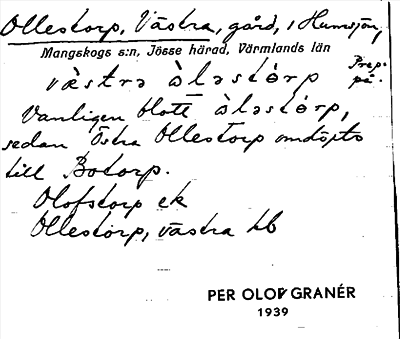 Ollestorp, Västra, gård, i Humsjön,
Mangskogs s:n, Jösse härad, Värmlands län
Prep.
på.
vä̀stra ὰləstὁrp
Vanligen blott ὰləstὁrp,
sedan Östra Ollestorp omdöpts
till Botorp.
Olofstorp ek
Ollestorp, västra hb
PER OLOF GRANÉR
1939